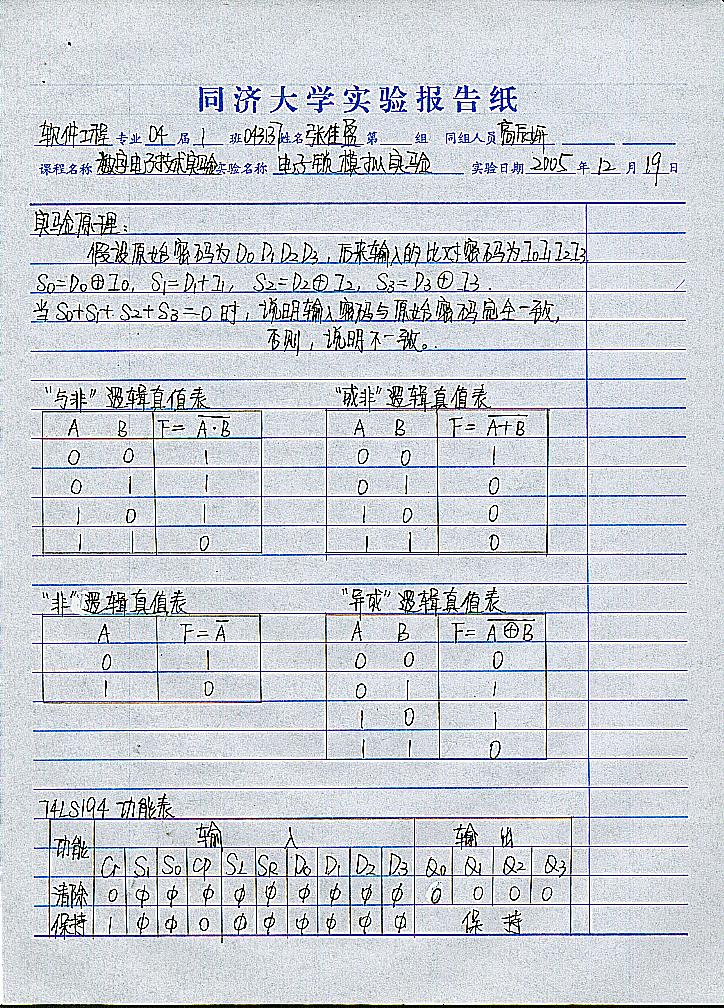 同济大学实验报告纸
软件工程 专业 04 届 1 班 043137 姓名 张佳 第 组 同组人员
课程名称 数字电子技术实验 实验名称 电子锁模拟实验 实验日期 2005 年 12 月 19 日
实验原理:
假设原始密码为D0D1D2D3,后来输入的比对密码为I0I1I2I3
S0=D0⊕I0, S1=D1+I1, S2=D2⊕I2, S3=D3⊕I3.
当S0+S1+S2+S3=0时,说明输入密码与原始密码完全一致,
否则,说明不一致。
"与非"逻辑真值表 "或非"逻辑真值表
A B F=A̅·̅B̅ A B F=A̅+̅B̅
0 0 1 0 0 1
0 1 1 0 1 0
1 0 1 1 0 0
1 1 0 1 1 0
"非"逻辑真值表 "异或"逻辑真值表
A F=A̅ A B F=A̅⊕̅B̅
0 1 0 0 0
1 0 0 1 1
1 0 1
1 1 0
74LS194 功能表
功能 输 入 输 出
Cr S1 S0 CP SL SR D0 D1 D2 D3 Q0 Q1 Q2 Q3
清除 0 φ φ φ φ φ φ φ φ φ 0 0 0 0
保持 1 φ φ 0 φ φ φ φ φ φ 保 持